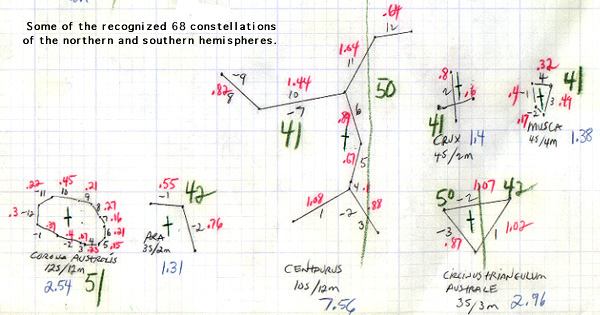 Some of the recognized 68 constellations
of the northern and southern hemispheres.
.64
12
1.64
11
50
-9
.82
8
1.44
10
-7
41
6
.89
5
.67
4
1.08
1
-2
3
.88
CENTAURUS
10S/12m
7.56
.8
2
1
.6
41
CRUX
4S/2m
1.4
.32
4
41
.4
-1
3
.49
.17
-2
MUSCA
4S/4m
1.38
.22
.45
.21
-11
10
9
8
.27
.3
-12
7
.16
6
.21
-1
.39
.4
.07
-2
3
4
5
.15
.23
CORONA AUSTRALIS
12S/12m
2.54
51
.55
42
-1
-2
.76
ARA
3S/2m
1.31
50
1.07
42
-2
-3
.87
1
1.02
CIRCINUS TRIANGULUM
AUSTRALE
3S/3m
2.96